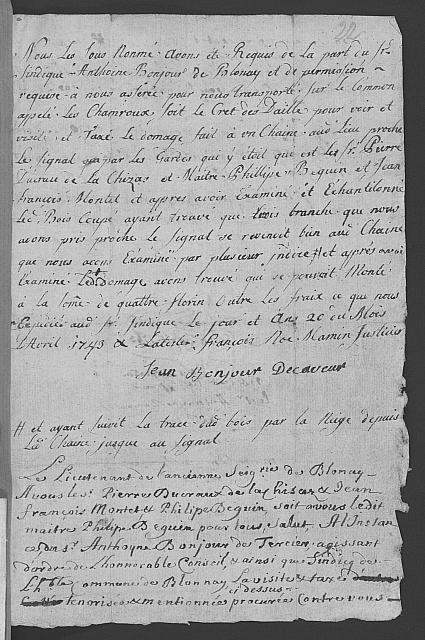 Nous Les Sous Nommé Avons été Requis de La part du Sr
Sindique Anthoine Bonjour de Blonay et de permission
requise à nous transporté Sur Le Common
apelé Les Chamroux Soit Le Cret des Daille pour voir et
visité et Taxé Le domage fait à un Chaine aud Lieu proche
Le Signal par Les Gardes que y étoit que est Les Sr Pierre
Ducraux de La Chizas et Maitre Phillipe Beguin et Jean
françois Montet et apres avoir Examiné et Echantilonné
Led Bois Coupé ayant trouvé que trois branche que nous
avons pris proche Le Signal se revenoit bien aud Chaine
que nous avons Examiné par plusieur # et après avoir
Examiné Ledt Domage avons trouvé qui se pouvoit Monté
à la some de quattre florin Outre Les fraix ce que nous
Expédiés aud Sr Sindique Le jour et Ans 20 du Mois
D'Avril 1743 & L'atester françois Noé Mamin Justicier
Jean Bonjour Decaveur
# et ayant suivit La trace dud bois par La Neige depuis
Lad Chaine jusque au Signal
Le Lieutenant de L'ancienne Seigrie de Blonay
A vous les Srs Pierre Ducraux de la chisas & Jean
François Montet & Philipe Beguin, soit a vous ledit
maitre Philipe Beguin pour tous, Salut, A L'instan
ce du Sr Anthoyne Bonjour de Tercier, agissant
d'ordre de L'honnorable Conseil & ainsi que Sindiq de
L'hble Commune de Blonnay, La visite & taxe
ci dessus
tenorisée & mentionnée procurée Contre vous